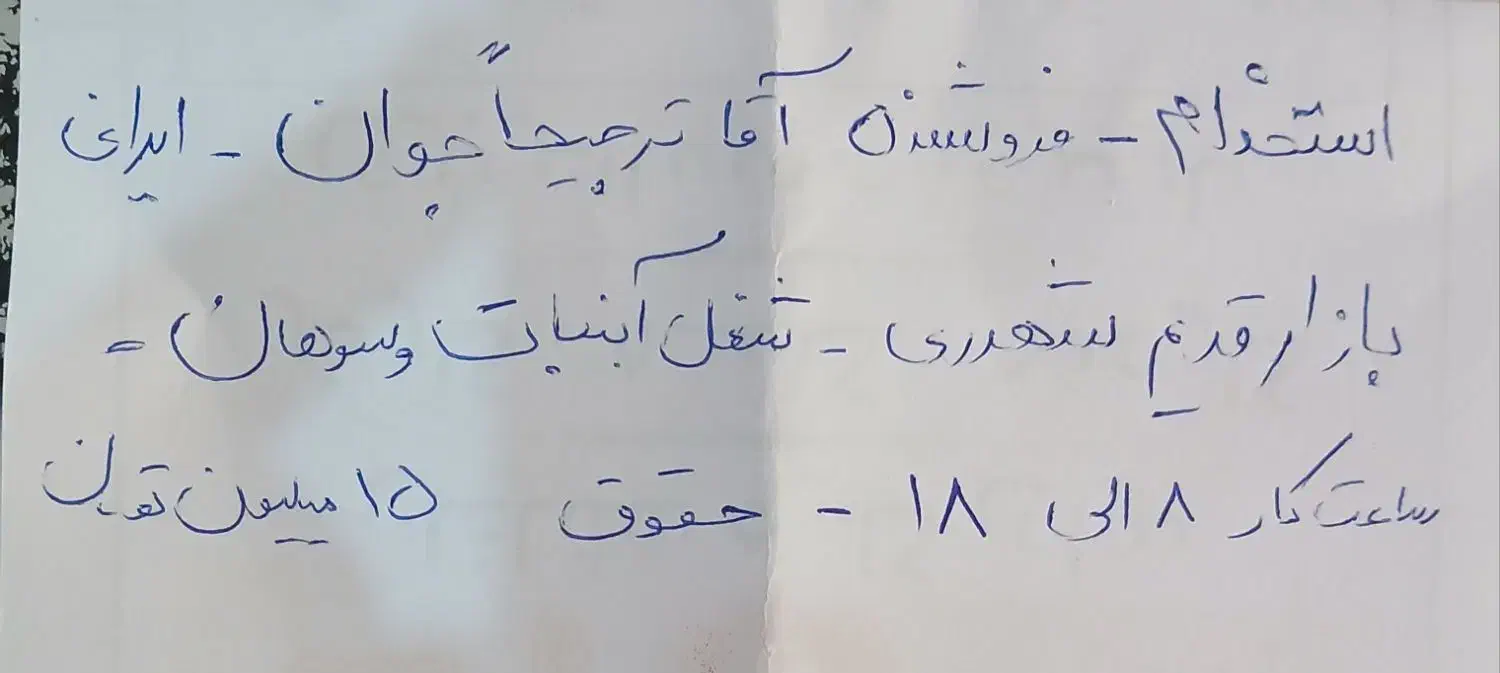 استخدام - فروشنده آقا ترجیحاً جوان - ایرانی
بازار قدیم شهرری - شغل آبنبات و سوهان -
ساعت کار ۸ الی ۱۸ - حقوق ۱۵ میلیون تومان